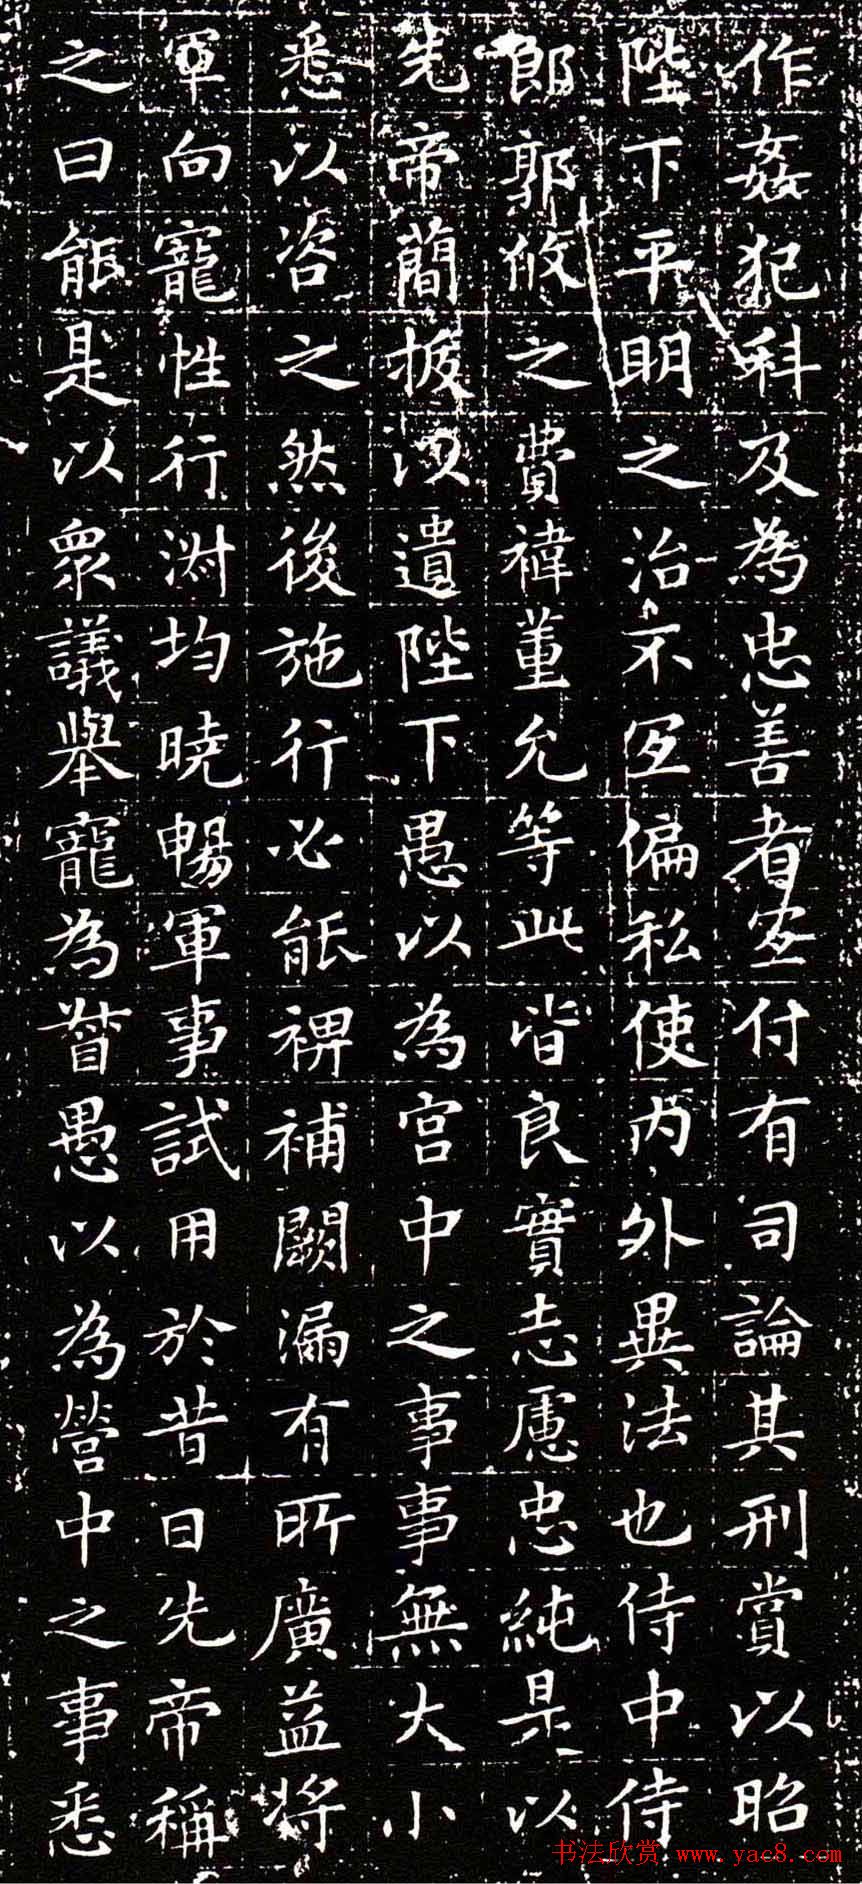 作姦犯科及為忠善者宜付有司論其刑賞以昭
陛下平明之治不宜偏私使内外異法也侍中侍
郎郭攸之費禕董允等此皆良實志慮忠純是以
先帝簡拔以遺陛下愚以為宮中之事事無大小
悉以咨之然後施行必能裨補闕漏有所廣益將
軍向寵性行淑均曉暢軍事試用於昔日先帝稱
之曰能是以眾議舉寵為督愚以為營中之事悉
书法欣赏 www.yac8.com